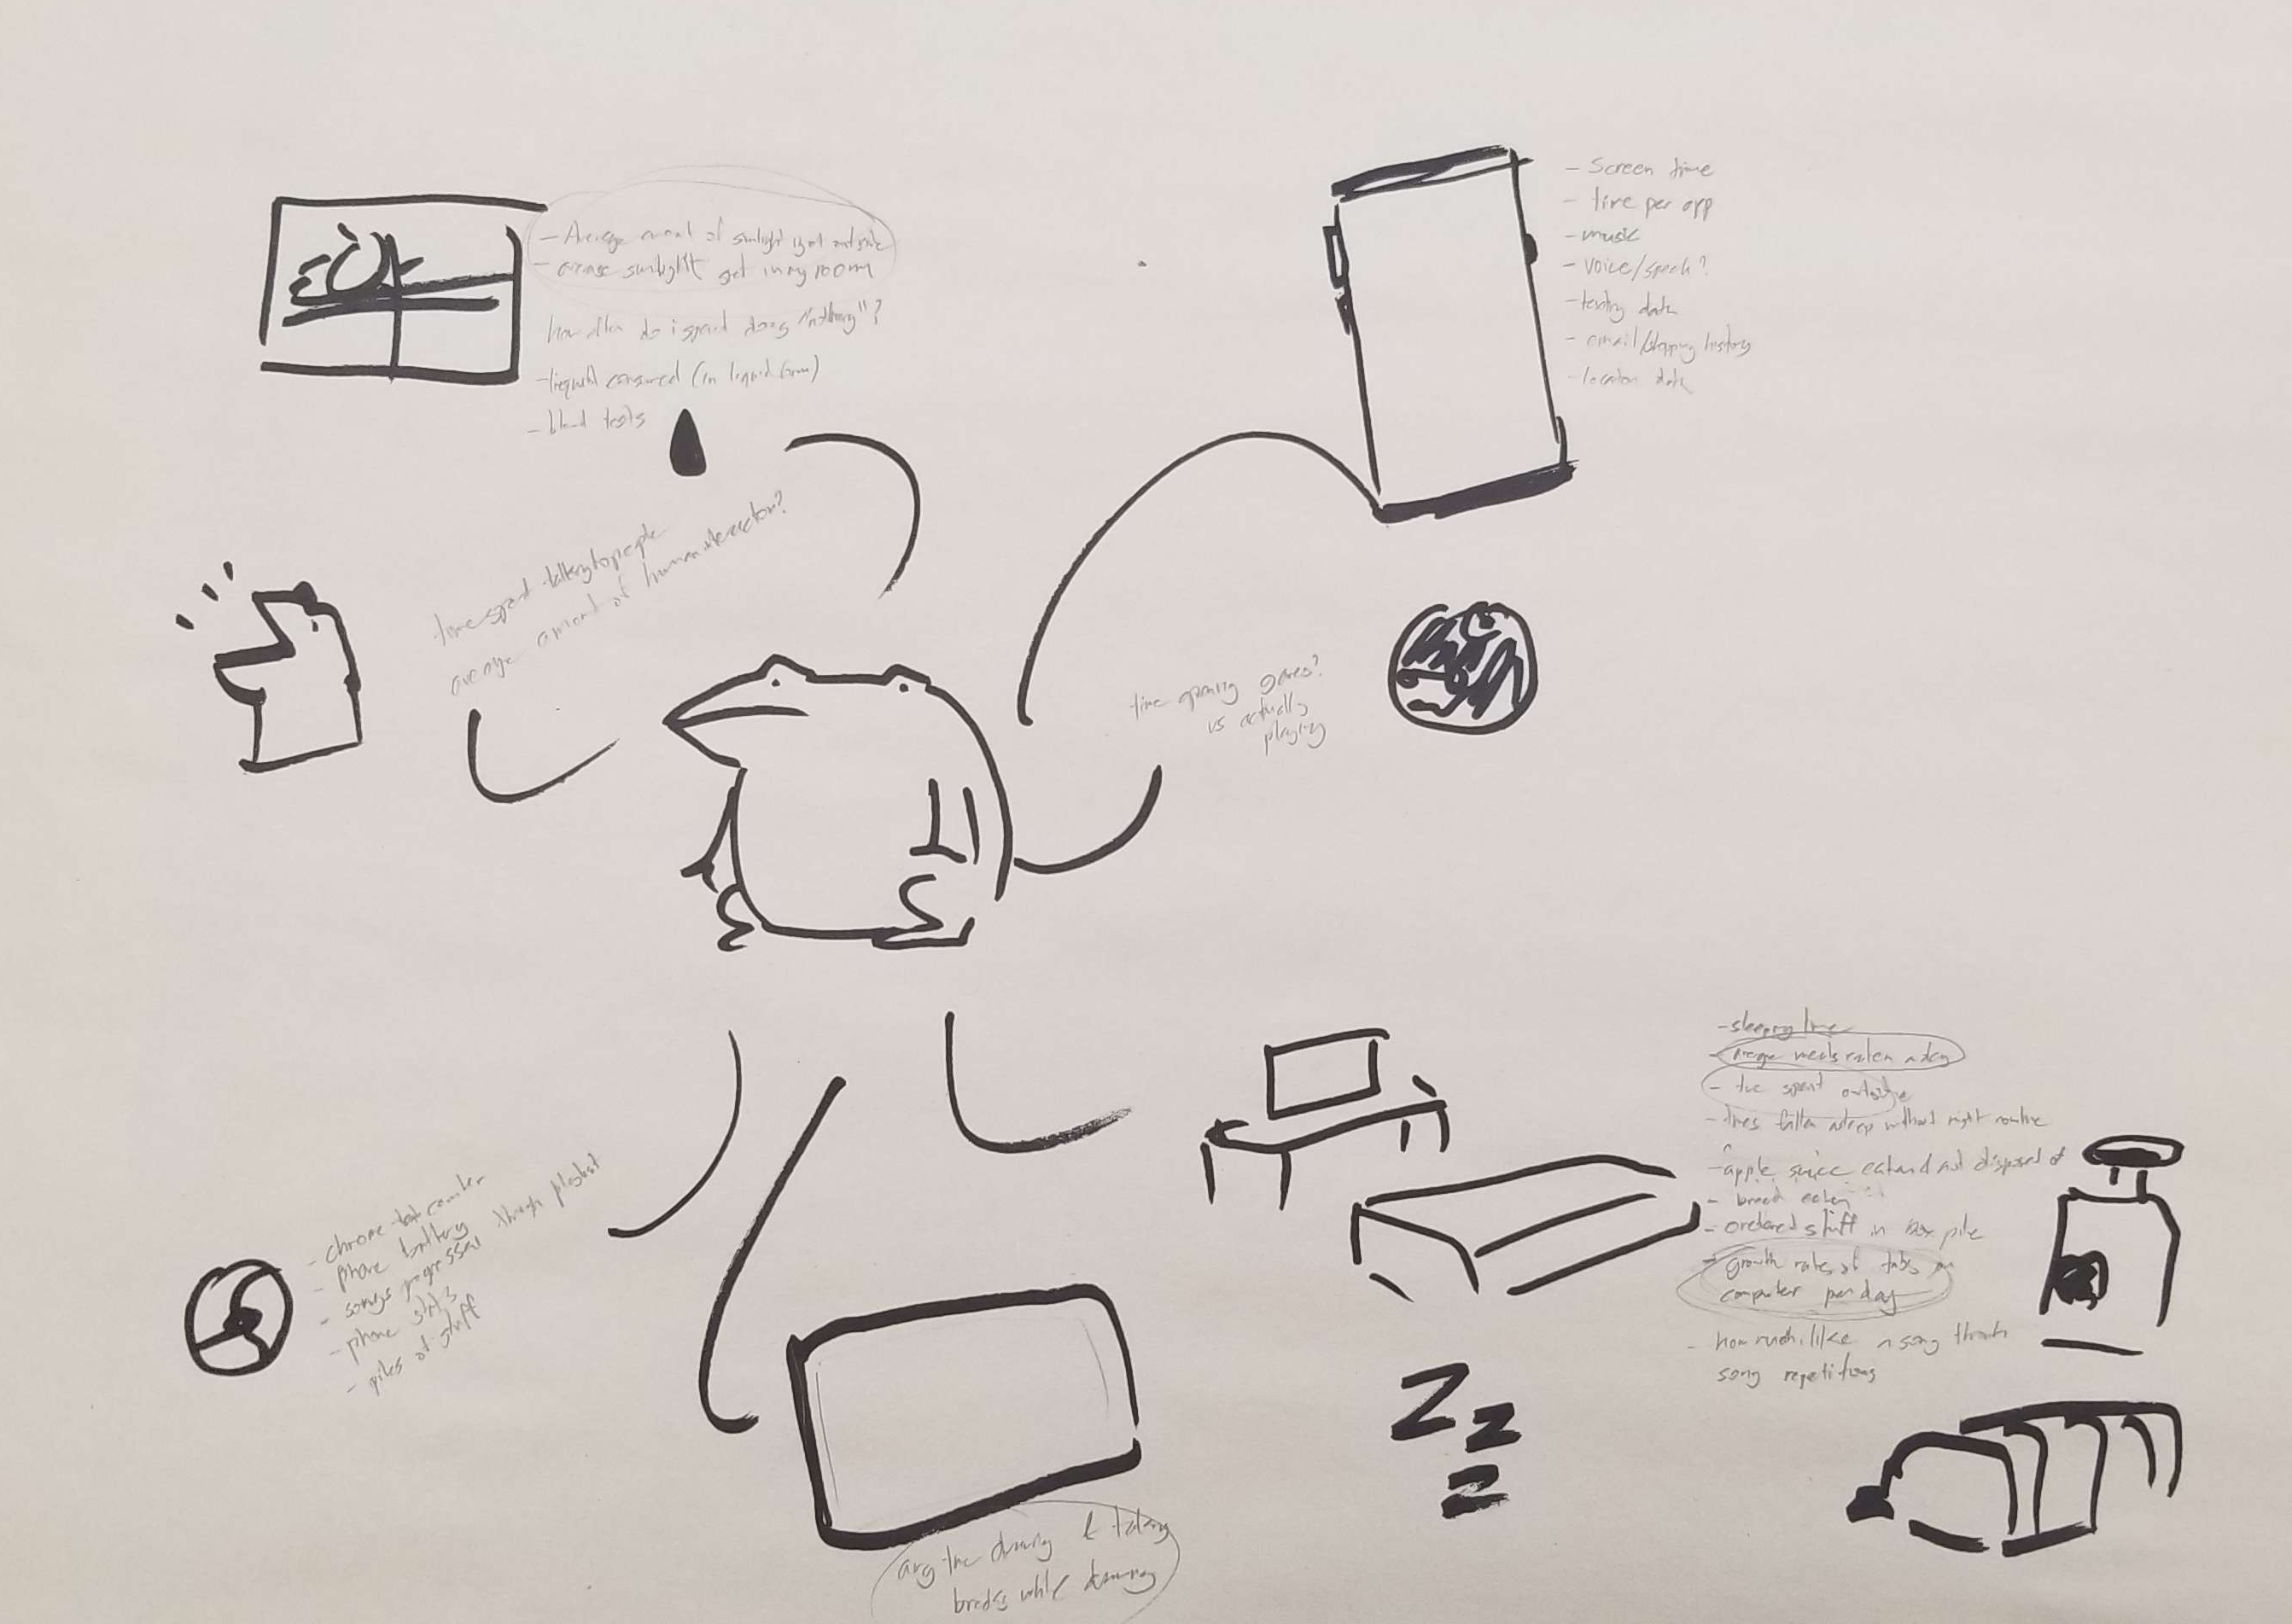 - Average amount of sunlight i get outside
- average sunlight get in my room
how often do i spend doing "nothing"?
- liquid consumed (in liquid form)
- blood tests
- Screen time
- time per app
- music
- voice/speech?
- texting data
- email/shopping history
- location data
time spent talking to people
average amount of human interaction?
time opening games?
vs actually
playing
- sleeping time
- average meals eaten a day
- time spent outside
- times fallen asleep without night routine
- apple juice and not disposed of
- bread eaten
- ordered stuff in box pile
- growth rates of tabs on
computer per day
- how much i like a song through
song repetitions
Z z z
- chrome tab counter
- phone battery
- songs progressed through playlist
- phone stats
- piles of stuff
avg time drawing & taking
breaks while drawing